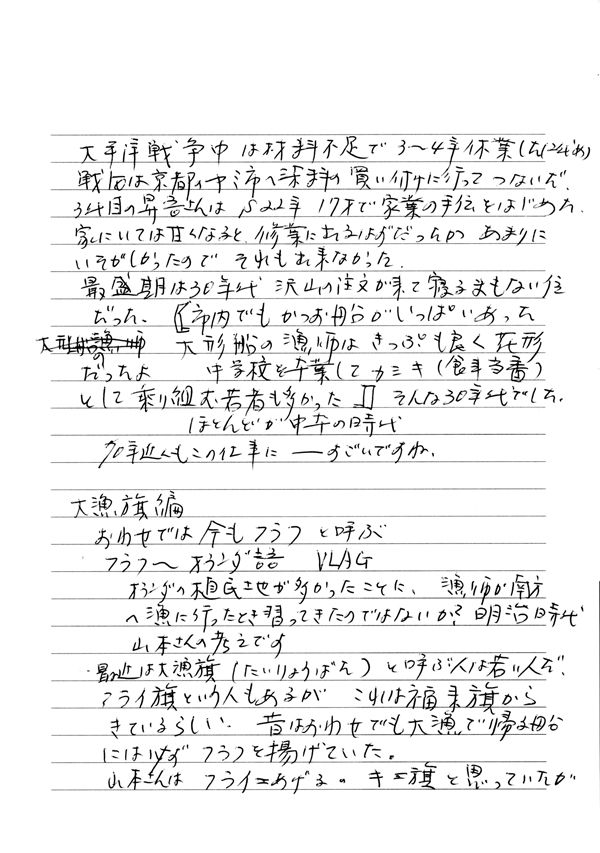 太平洋戦争中は材料不足で3〜4年休業(た(2代め)
戦后は京都のヤミ市へ染料の買い付けに行ってつないだ.
3代目の昇吾さんはS22年 17才で家業の手伝をはじめた.
家にいては甘くなると、修業に出るはずだったが あまりに
いそがしかったので それも出来なかった.
最盛期は30年代 沢山の注文が来て寝るまもない位
だった. 『市内でもかつお船がいっぱいあった
大型船の漁師はきっぷも良く花形
だったよ 中学校を卒業してカシキ(食事当番)
として乗り組む若者も多かった』 そんな30年代でした.
ほとんどが中卒の時代
70年近くもこの仕事に ―すごいですね.
大漁旗編
おわせでは今もフラフと呼ぶ
フラフ〜オランダ語 VLAG
オランダの植民地が多かったことに、漁師が南方
へ漁に行ったとき習ってきたのではないか? 明治時代
山本さんの考えです
・最近は大漁旗(たいりょうばた)と呼ぶ人は若い人だ.
フライ旗という人もあるが これは福来旗から
きているらしい. 昔はおわせでも大漁で帰る船
には必ずフラフを揚げていた。
山本さんは フライ=あげるの キ=旗と思っていたが